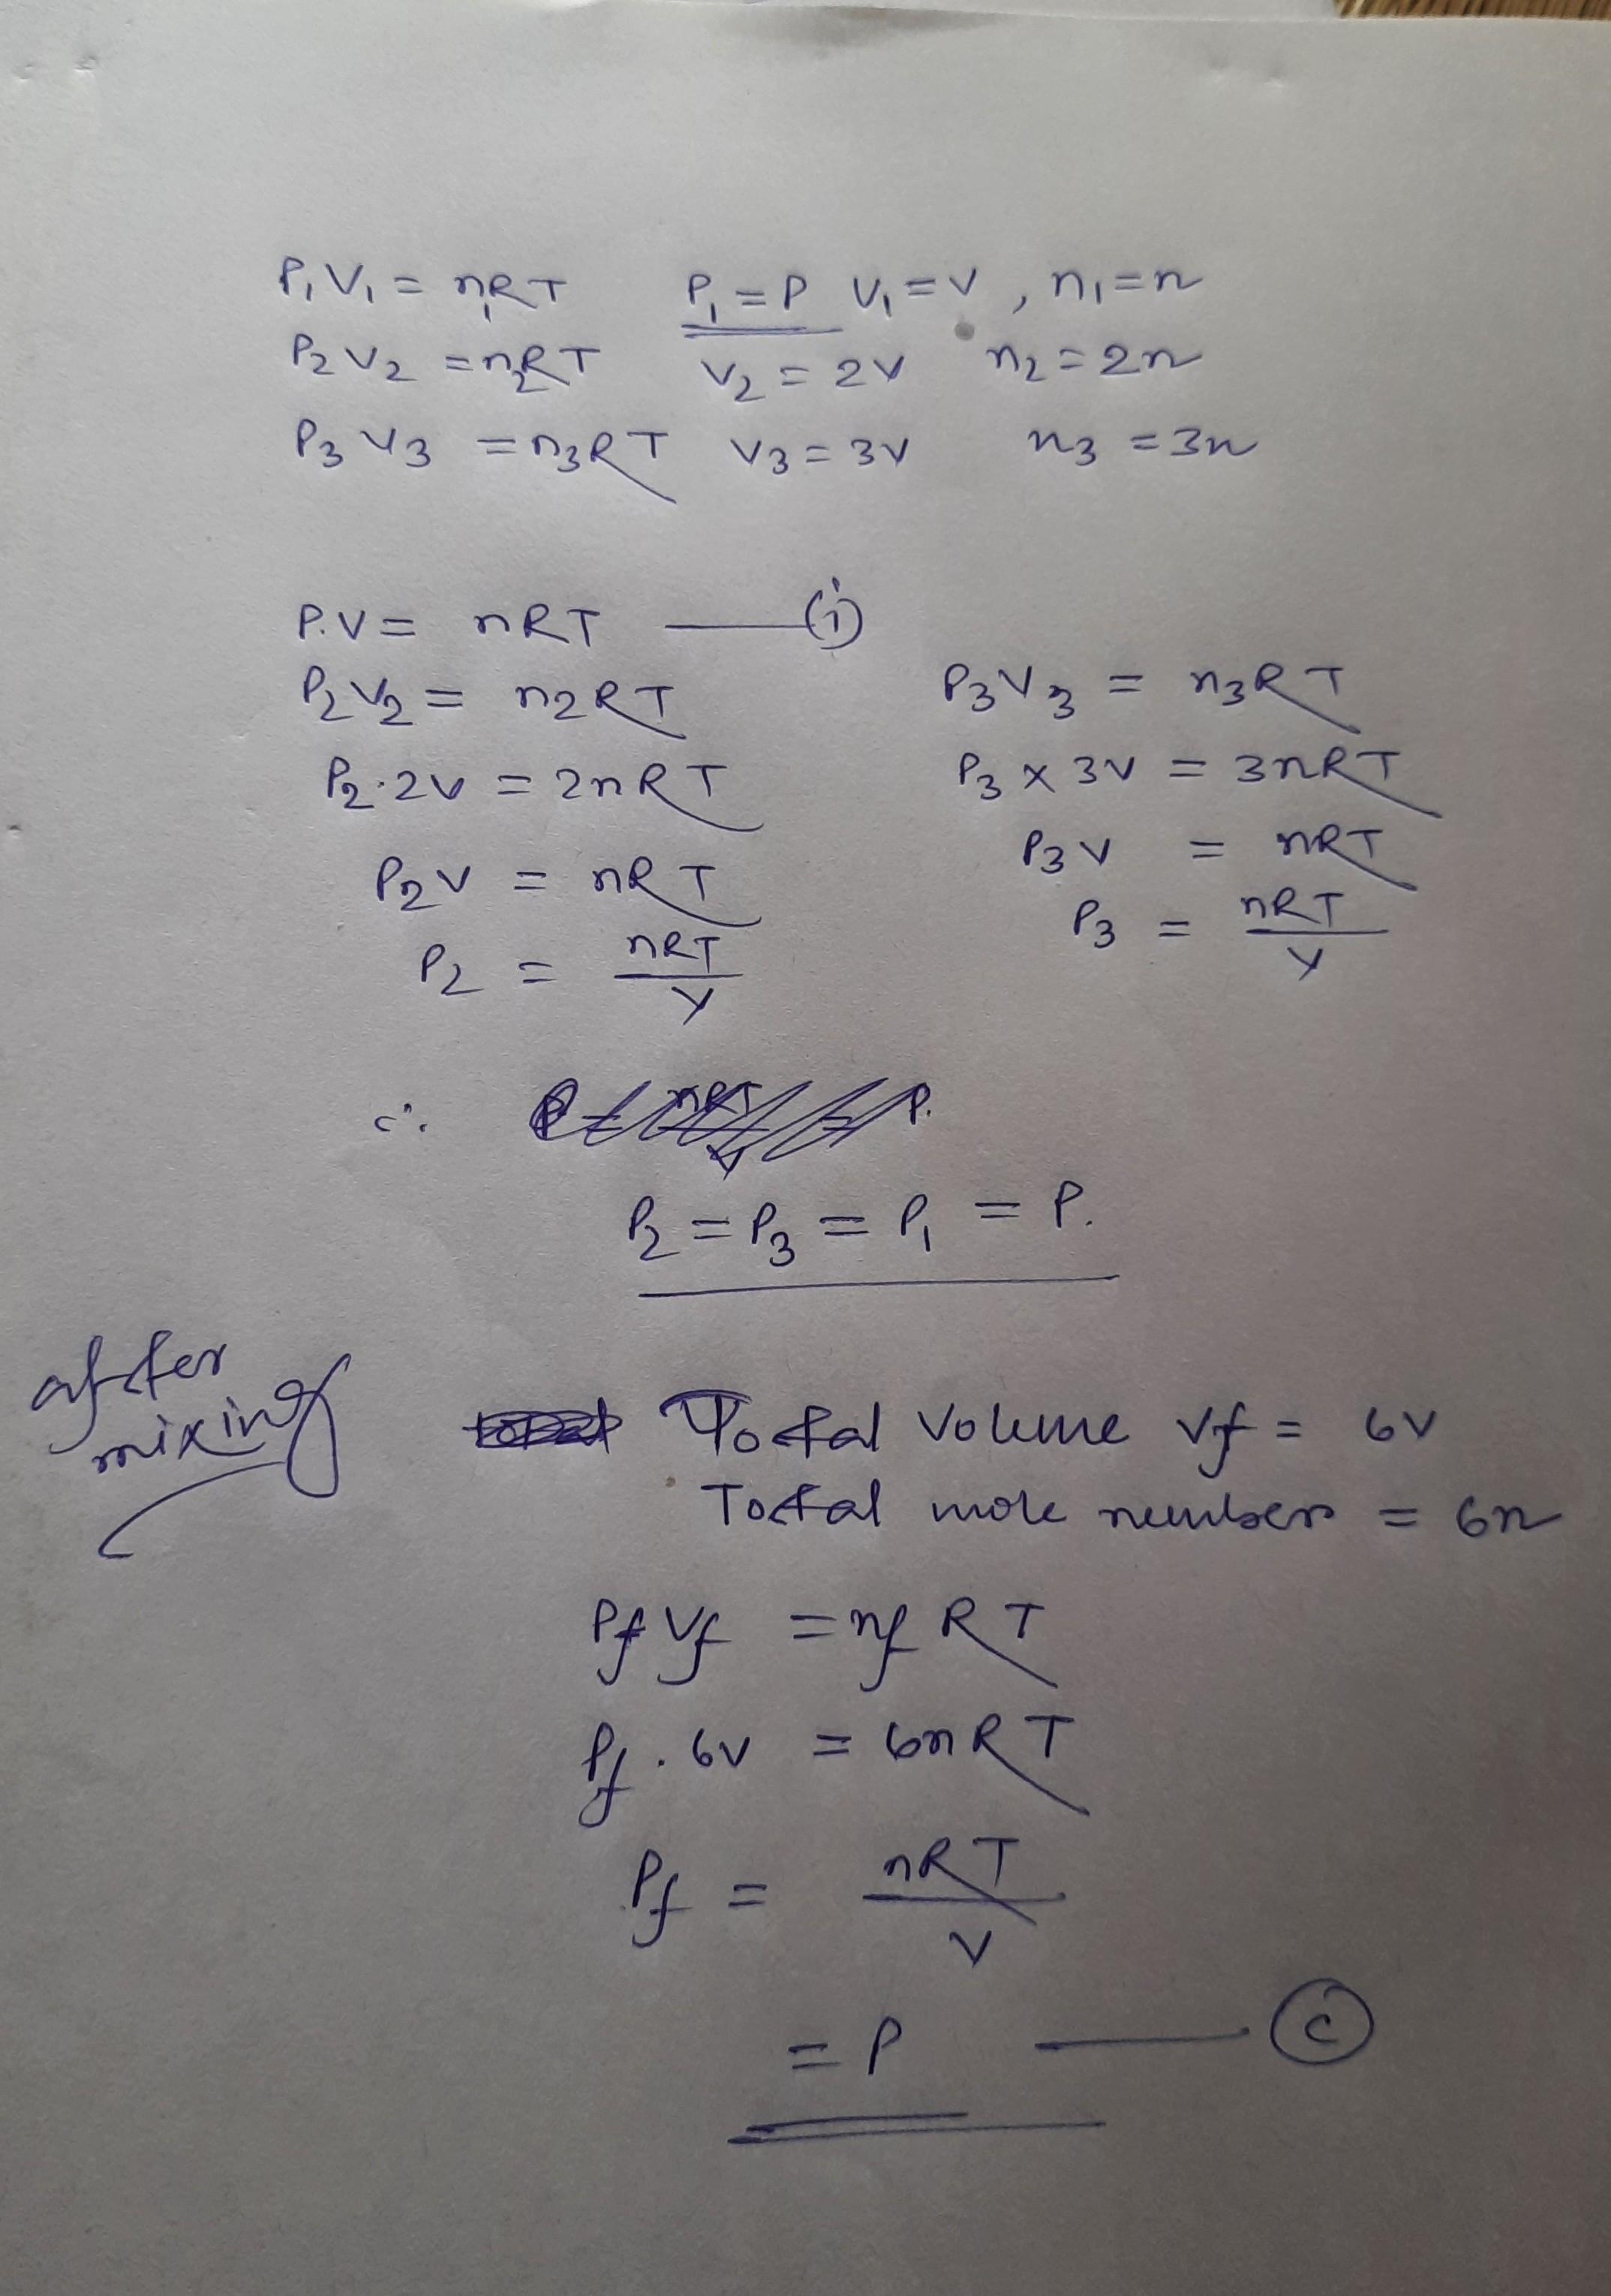 P₁V₁ = n₁RT P₁ = P V₁ = V , n₁ = n
P₂V₂ = n₂RT V₂ = 2V n₂ = 2n
P₃V₃ = n₃RT V₃ = 3V n₃ = 3n
P.V = nRT —— (i)
P₂V₂ = n₂RT
P₂.2V = 2nRT
P₂V = nRT
P₂ = nRT/V
P₃V₃ = n₃RT
P₃ × 3V = 3nRT
P₃V = nRT
P₃ = nRT/V
∴
P₂ = P₃ = P₁ = P.
after
mixing
Total Volume Vf = 6V
Total mole numbers = 6n
PfVf = nfRT
Pf . 6V = 6nRT
Pf = nRT/V
= P —— (c)